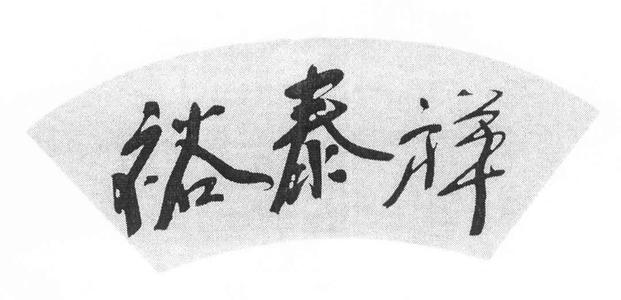 裕泰祥